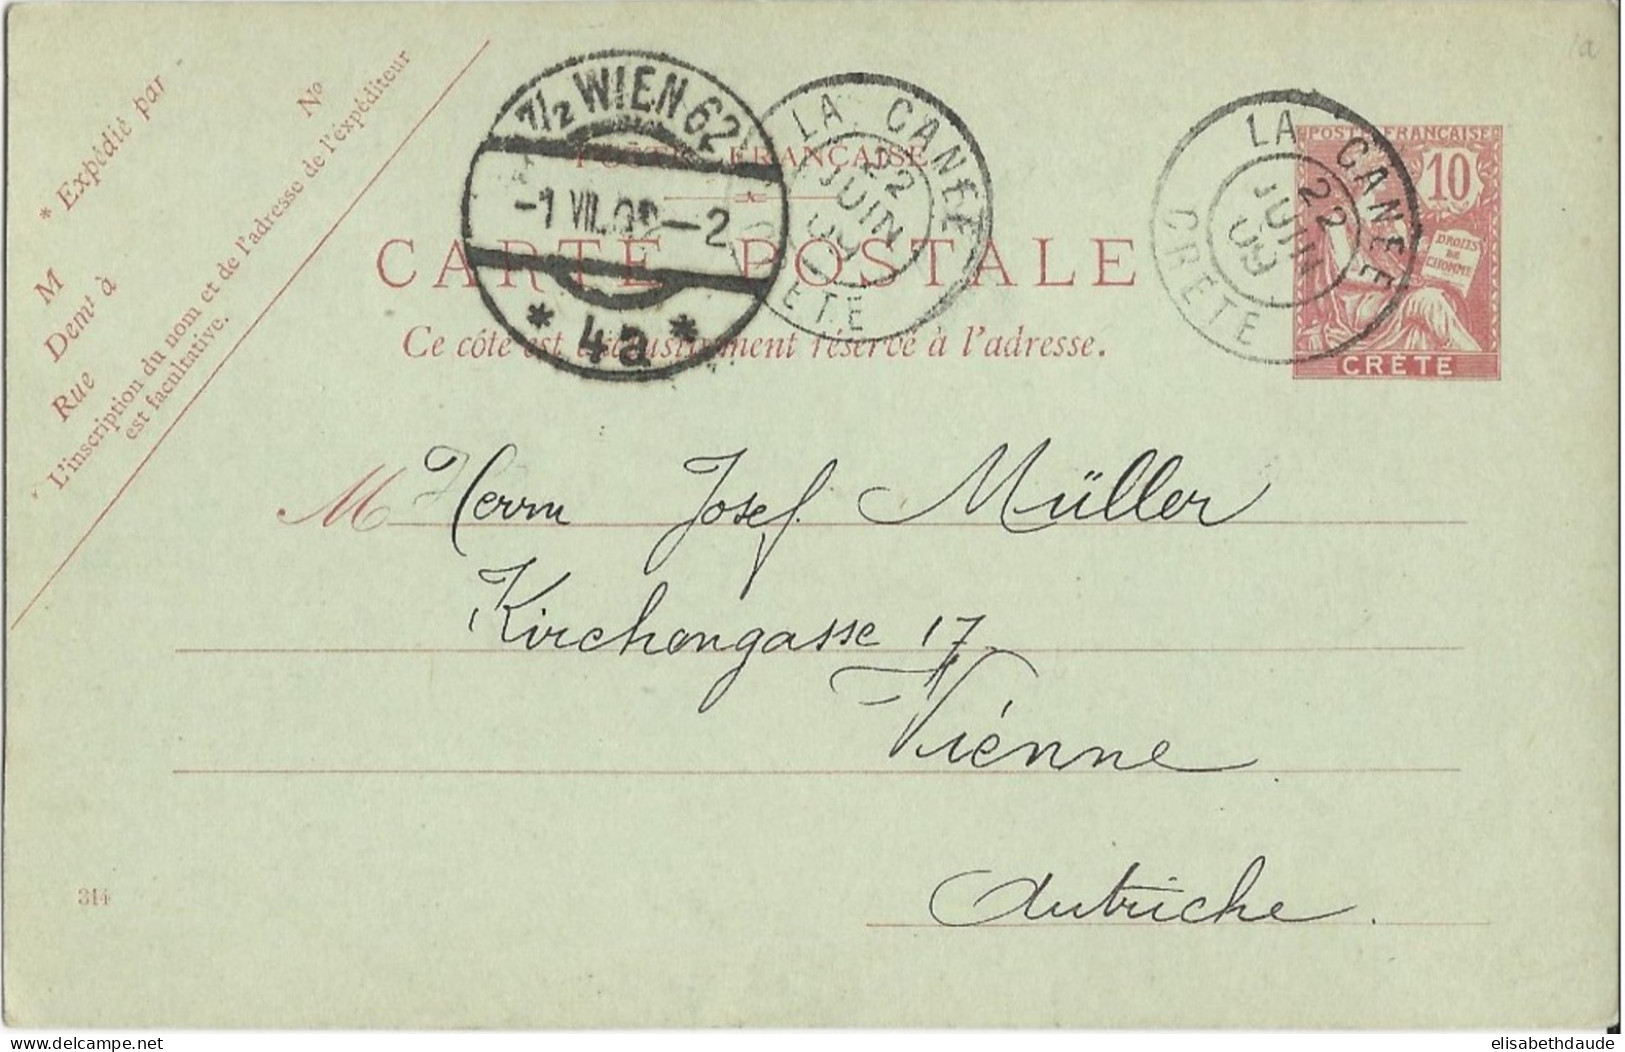 * Expédié par
N°
M
Demt à
Rue
L'inscription du nom et de l'adresse de l'expéditeur
est facultative.
7½ WIEN 62
-1 VII. 09 -2
* 4a *
LA CANÉE
22
JUIN
09
CRETE
LA CANÉE
22
JUIN
09
CRETE
POSTE FRANÇAISE
10
DROITS
DE
L'HOMME
CRÈTE
POSTE FRANÇAISE
CARTE POSTALE
Ce côté est exclusivement réservé à l'adresse.
M Herrn Josef Müller
Kirchengasse 17
Vienne
Autriche.
314
www.delcampe.net
elisabethdaude